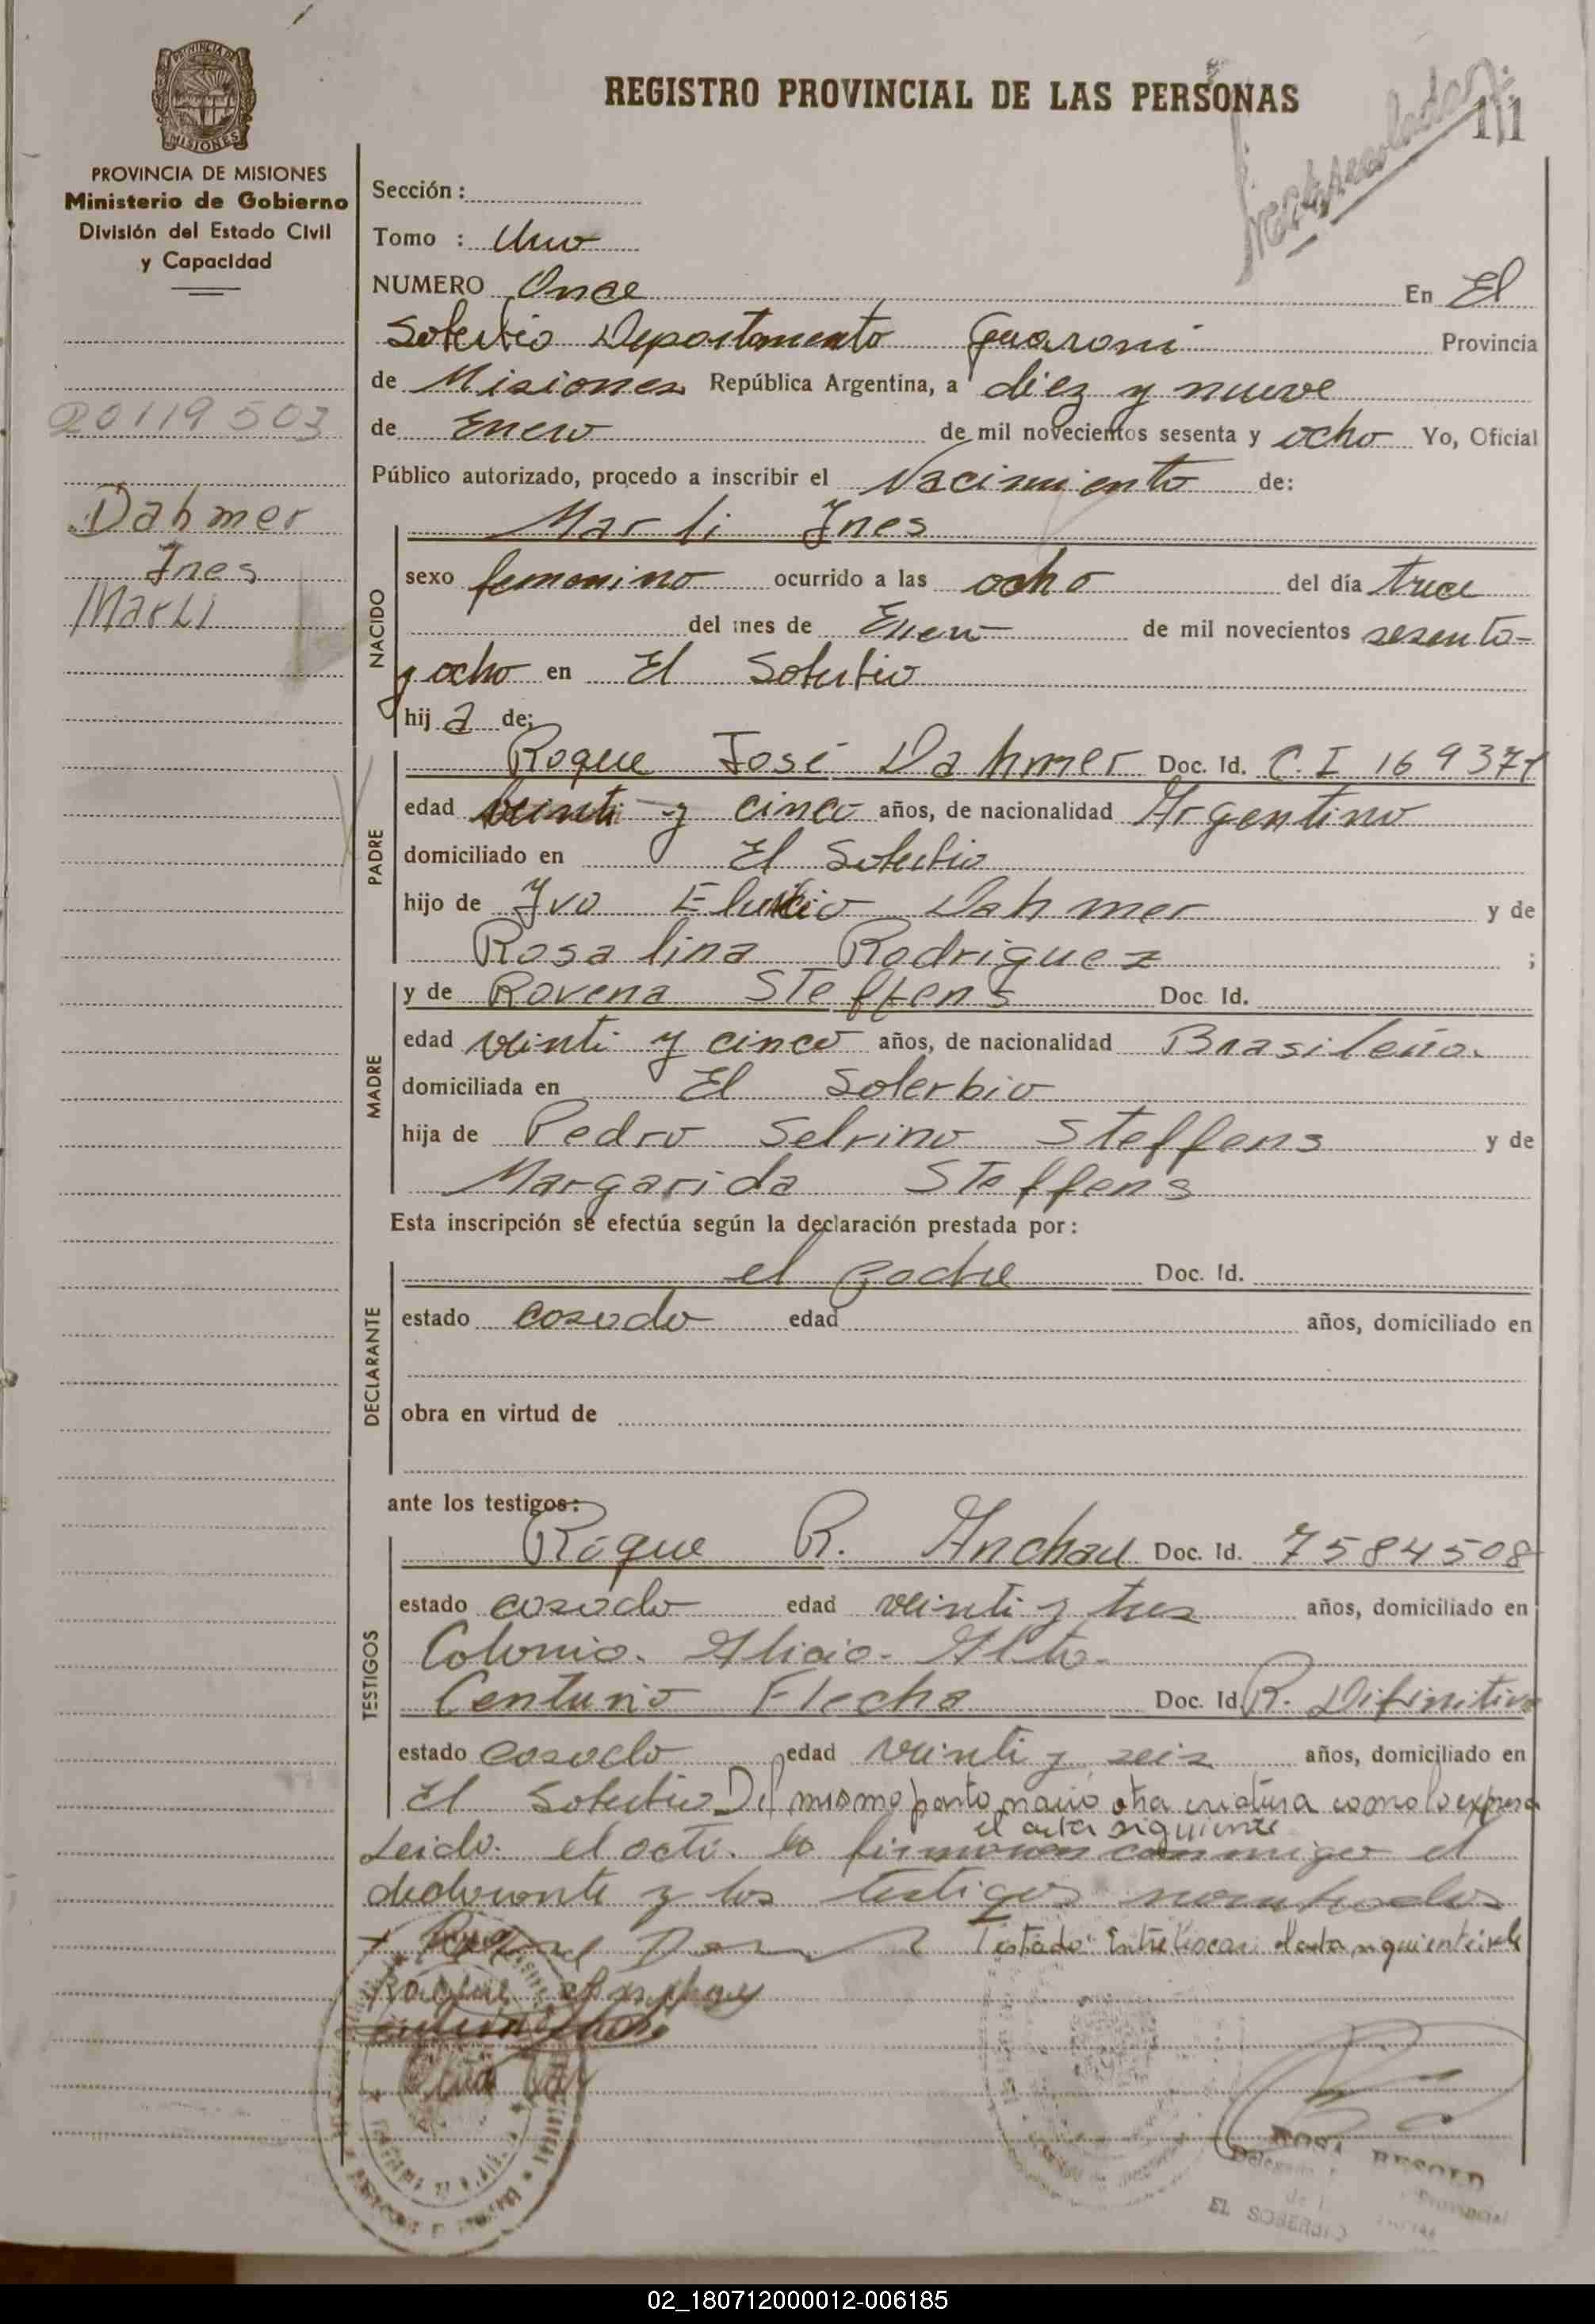 PROVINCIA DE
MISIONES
PROVINCIA DE MISIONES
Ministerio de Gobierno
División del Estado Civil
y Capacidad
20119503
Dahmer
Ines
Marli
REGISTRO PROVINCIAL DE LAS PERSONAS
11
Sección :
Tomo : Uno
NUMERO Once En El
Soberbio Departamento Guarani Provincia
de Misiones República Argentina, a diez y nueve
de Enero de mil novecientos sesenta y ocho Yo, Oficial
Público autorizado, procedo a inscribir el Nacimiento de:
Marli Ines
NACIDO
sexo femenino ocurrido a las ocho del día trece
del mes de Enero de mil novecientos sesenta
y ocho en El Soberbio
hij a de:
PADRE
Roque José Dahmer Doc. Id. C. I 169371
edad veinti y cinco años, de nacionalidad Argentino
domiciliado en El Soberbio
hijo de Ivo Dahmer y de
Rosalina Rodriguez ;
MADRE
y de Rovena Steffens Doc. Id.
edad veinti y cinco años, de nacionalidad Brasileña.
domiciliada en El Soberbio
hija de Pedro Selvino Steffens y de
Margarida Steffens
Esta inscripción se efectúa según la declaración prestada por :
DECLARANTE
el padre Doc. Id.
estado casado edad años, domiciliado en
obra en virtud de
ante los testigos:
TESTIGOS
Roque R. Anchau Doc. Id. 7584508
estado casado edad veinti y tres años, domiciliado en
Colonia. Alicia. Alta.
Centurio Flecha Doc. Id. R. Difinitiva
estado casado edad veinti y seis años, domiciliado en
El Soberbio Del mismo parto nació otra criatura como lo expresa
el acta siguiente
Leida. el acta. la firmaron conmigo el
declarante y los testigos nombrados
Testado: Entre lineas: el acta siguiente: vale
ROSA BESOLD
Delegada
Provincial
EL SOBERBIO
02_180712000012-006185